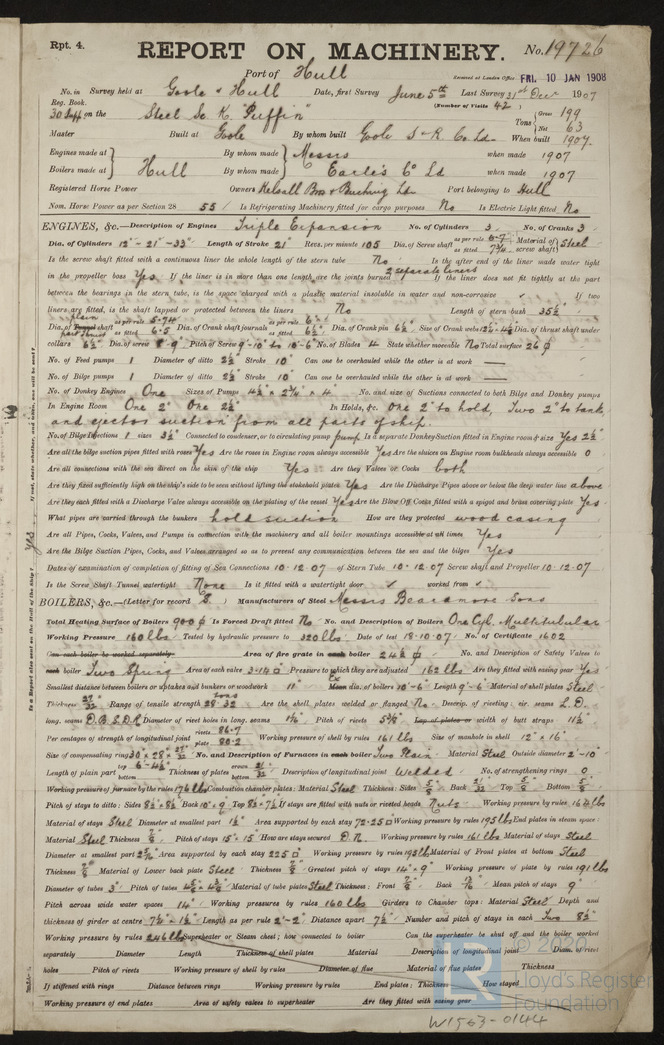 Rpt. 4.
REPORT ON MACHINERY. No. 19726
Port of Hull
Received at London Office FRI. 10 JAN 1908
No. in Survey held at Goole & Hull Date, first Survey June 5th Last Survey 31st Decr 1907
Reg. Book. (Number of Visits 42)
30 Supp on the Steel Sc. K. "Puffin" Tons { Gross 199
Net 63
Master Built at Goole By whom built Goole S & R Co Ld. When built 1907
Engines made at Hull By whom made Messrs when made 1907
Boilers made at By whom made Earle's Co Ld when made 1907
Registered Horse Power Owners Kelsall Bros & Beeching Ld Port belonging to Hull
Nom. Horse Power as per Section 28 55 Is Refrigerating Machinery fitted for cargo purposes No Is Electric Light fitted No
ENGINES, &c.—Description of Engines Triple Expansion No. of Cylinders 3 No. of Cranks 3
Dia. of Cylinders 12" - 21" - 33" Length of Stroke 21" Revs. per minute 105 Dia. of Screw shaft as per rule as fitted Material of screw shaft Steel
Is the screw shaft fitted with a continuous liner the whole length of the stern tube No Is the after end of the liner made water tight
in the propeller boss Yes If the liner is in more than one length are the joints burned 2 separate liners If the liner does not fit tightly at the part
between the bearings in the stern tube, is the space charged with a plastic material insoluble in water and non-corrosive If two
liners are fitted, is the shaft lapped or protected between the liners No Length of stern bush 35½"
Dia. of Tunnel shaft as per rule 5.74 as fitted 6.5 Dia. of Crank shaft journals as per rule as fitted 6½" Dia. of Crank pin 6½" Size of Crank webs Dia. of thrust shaft under
collars 6½" Dia. of screw 8-9" Pitch of Screw 9-10" to 10-6" No. of Blades 4 State whether moveable No Total surface 26
No. of Feed pumps 1 Diameter of ditto 2½" Stroke 10" Can one be overhauled while the other is at work
No. of Bilge pumps 1 Diameter of ditto 2½" Stroke 10" Can one be overhauled while the other is at work
No. of Donkey Engines One Sizes of Pumps No. and size of Suctions connected to both Bilge and Donkey pumps
In Engine Room One 2" One 2½" In Holds, &c. One 2" to hold, Two 2" to tank,
and ejector suction from all parts of ship.
No. of Bilge Injections 1 sizes 3½" Connected to condenser, or to circulating pump pump Is a separate Donkey Suction fitted in Engine room & size Yes 2½"
Are all the bilge suction pipes fitted with roses Yes Are the roses in Engine room always accessible Yes Are the sluices on Engine room bulkheads always accessible 0
Are all connections with the sea direct on the skin of the ship Yes Are they Valves or Cocks both
Are they fixed sufficiently high on the ship's side to be seen without lifting the stokehold plates Yes Are the Discharge Pipes above or below the deep water line above
Are they each fitted with a Discharge Valve always accessible on the plating of the vessel Yes Are the Blow Off Cocks fitted with a spigot and brass covering plate Yes
What pipes are carried through the bunkers hold suction How are they protected wood casing
Are all Pipes, Cocks, Valves, and Pumps in connection with the machinery and all boiler mountings accessible at all times Yes
Are the Bilge Suction Pipes, Cocks, and Valves arranged so as to prevent any communication between the sea and the bilges Yes
Dates of examination of completion of fitting of Sea Connections 10.12.07 of Stern Tube 10.12.07 Screw shaft and Propeller 10.12.07
Is the Screw Shaft Tunnel watertight None Is it fitted with a watertight door worked from
BOILERS, &c.—(Letter for record S.) Manufacturers of Steel Messrs Beardmore Sons
Total Heating Surface of Boilers 900 Is Forced Draft fitted No No. and Description of Boilers One Cyl. Multitubular
Working Pressure 160 lbs Tested by hydraulic pressure to 320 lbs Date of test 18.10.07 No. of Certificate 1602
Can each boiler be worked separately Area of fire grate in each boiler No. and Description of Safety Valves to
each boiler Two Spring Area of each valve 3.14 Pressure to which they are adjusted 162 lbs Are they fitted with easing gear Yes
Smallest distance between boilers or uptakes and bunkers or woodwork 11" Mean dia. of boilers 10'-6" Length 9'-6" Material of shell plates Steel
Thickness 27/32 Range of tensile strength 28.32 tons Are the shell plates welded or flanged No Descrip. of riveting: cir. seams L.D.
long. seams D.B.S.D.R. Diameter of rivet holes in long. seams Pitch of rivets Lap of plates or width of butt straps 11½"
Per centages of strength of longitudinal joint rivets 86.7 plate 80.2 Working pressure of shell by rules 161 lbs Size of manhole in shell 12" x 16"
Size of compensating ring 30" x 28" x 27/32" No. and Description of Furnaces in each boiler Two Plain Material Steel Outside diameter 2'-10"
Length of plain part top bottom Thickness of plates crown bottom Description of longitudinal joint Welded No. of strengthening rings 0
Working pressure of furnace by the rules 176 lbs Combustion chamber plates: Material Steel Thickness: Sides Back Top Bottom
Pitch of stays to ditto: Sides Back 10" x 9" Top If stays are fitted with nuts or riveted heads Nuts Working pressure by rules 164 lbs
Material of stays Steel Diameter at smallest part Area supported by each stay 72.25 Working pressure by rules 195 lbs End plates in steam space:
Material Steel Thickness 7/8" Pitch of stays 15" x 15" How are stays secured D.N. Working pressure by rules 161 lbs Material of stays Steel
Diameter at smallest part Area supported by each stay 225 Working pressure by rules 195 lbs Material of Front plates at bottom Steel
Thickness Material of Lower back plate Steel Thickness Greatest pitch of stays 14" x 9" Working pressure of plate by rules 191 lbs
Diameter of tubes 3" Pitch of tubes Material of tube plates Steel Thickness: Front Back Mean pitch of stays 9"
Pitch across wide water spaces 14" Working pressures by rules 160 lbs Girders to Chamber tops: Material Steel Depth and
thickness of girder at centre Length as per rule 2'-2" Distance apart 7½" Number and pitch of stays in each Two 8½"
Working pressure by rules 246 lbs Superheater or Steam chest; how connected to boiler Can the superheater be shut off and the boiler worked
separately Diameter Length Thickness of shell plates Material Description of longitudinal joint Diam. of rivet
holes Pitch of rivets Working pressure of shell by rules Diameter of flue Material of flue plates Thickness
If stiffened with rings Distance between rings Working pressure by rules End plates: Thickness How stayed
Working pressure of end plates Area of safety valves to superheater Are they fitted with easing gear
© 2020
Lloyd's Register
Foundation
W1563-0144
Is a Report also sent on the Hull of the ship? Yes
If not, state whether, and when, one will be sent?